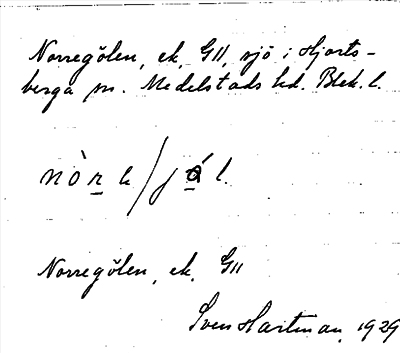 Norregölen, ek. G11, sjö i Hjorts-
berga sn. Medelstads hd. Blek. l.
nòrɛ/jǻl.
Norregölen, ek. G11
Sven Hartman, 1929